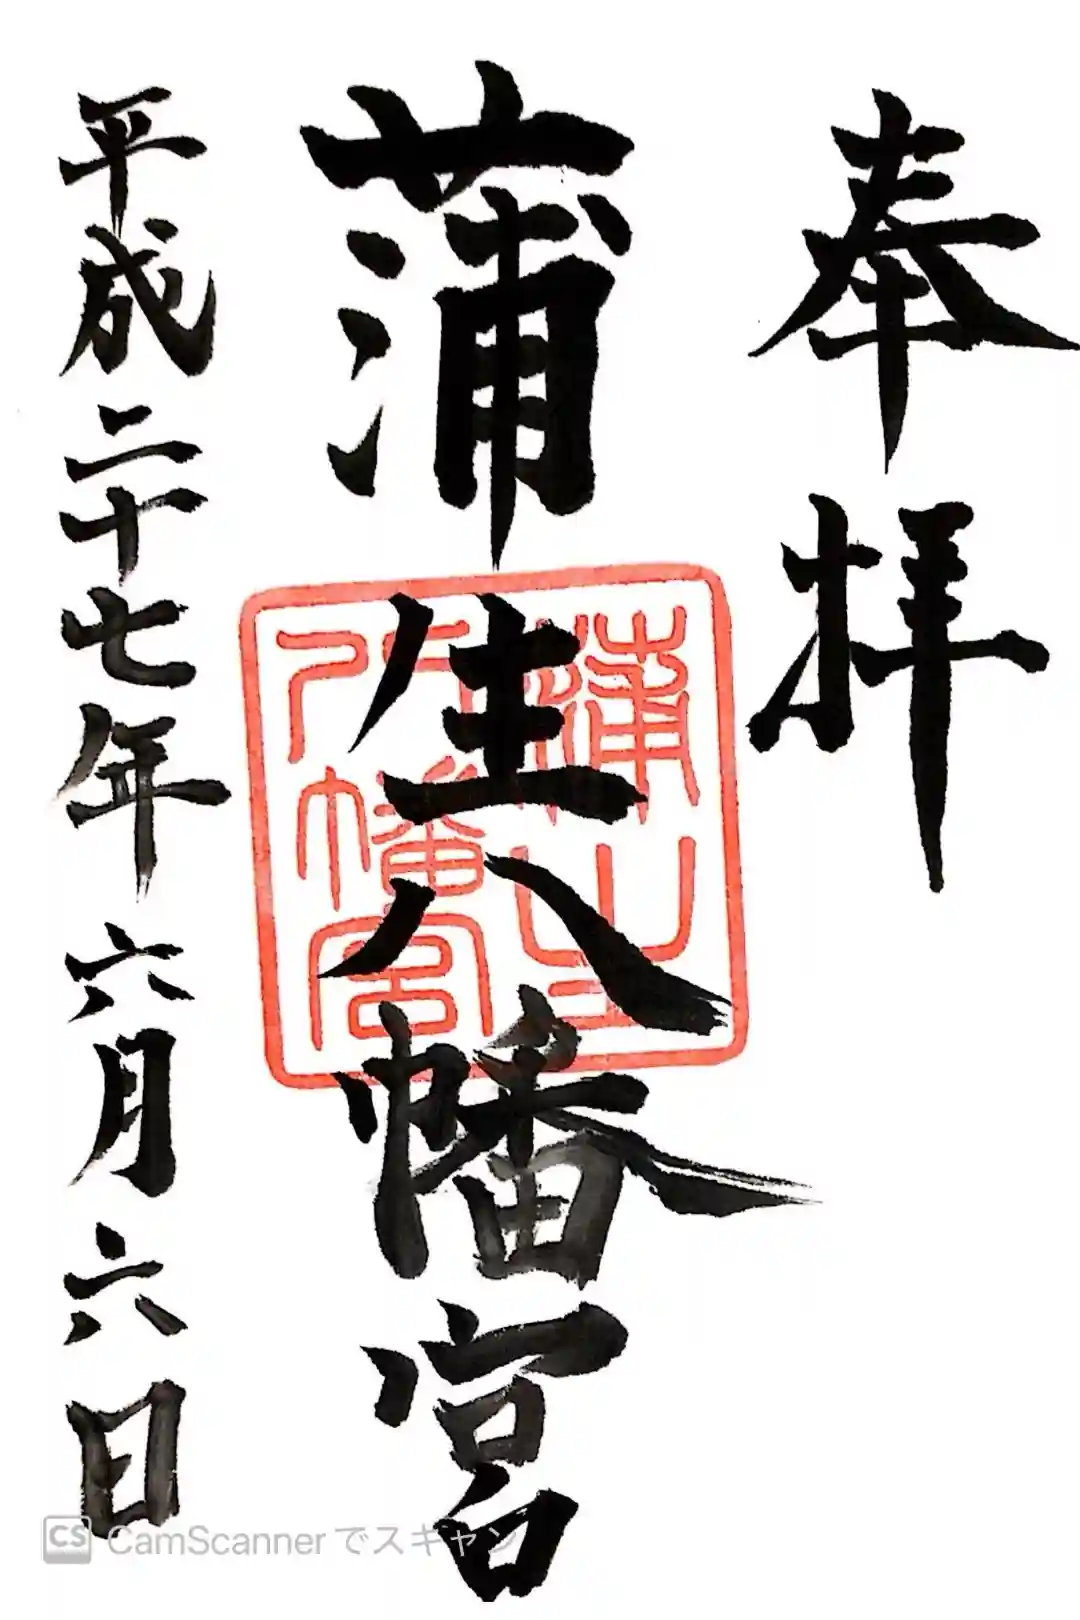 奉拝
蒲生八幡宮
蒲生
八幡宮
平成二十七年六月六日
CS CamScannerでスキャン